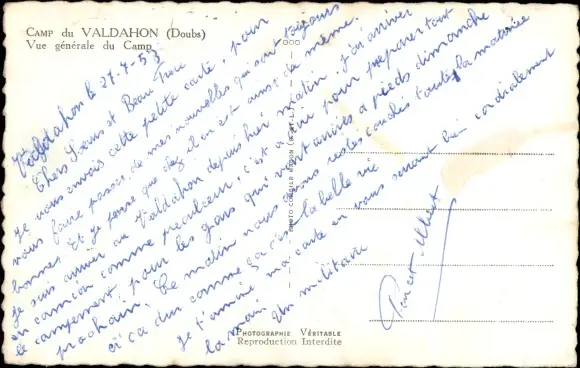 CAMP du VALDAHON (Doubs)
Vue générale du Camp
Valdahon le 27.7.53
Chers Sœurs et Beau Frère
Je vous envois cette petite carte, pour
vous faire passer de mes nouvelles qui sont toujours
bonnes. Et je pense que chez il en est ainsi de même.
Je suis arriver au Valdahon depuis hier matin, j'ai arriver
en camion comme précurseur, c'est à dire pour préparer tout
le campement pour les gars qui vont arrivés à pieds dimanche
prochain. Ce matin nous avons restés couchés toute la matinée
ci ca dure comme ça c'est la belle vie
Je termine ma carte en vous serrant bien cordialement
la main. Un militaire
Albert
PHOTOGRAPHIE VÉRITABLE
Reproduction Interdite